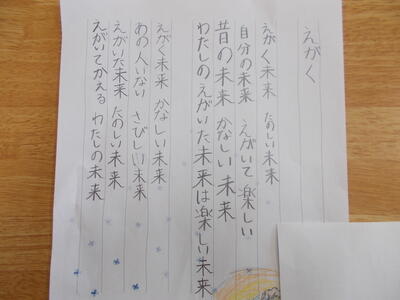 えがく
えがく未来 たのしい未来
自分の未来 えがいて楽しい
昔の未来 かなしい未来
わたしの えがいた未来は楽しい未来
えがく未来 かなしい未来
あの人いない さびしい未来
えがいた未来 たのしい未来
えがいてかえる わたしの未来